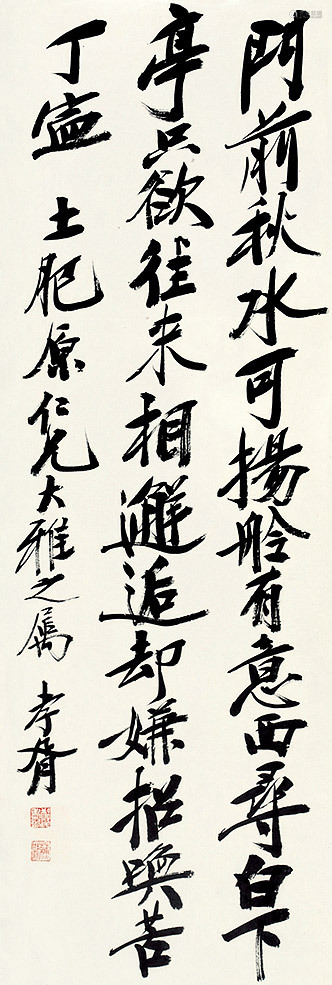 門前秋水可揚舲有意西尋白下
亭只欲往來相邂逅却嫌招喚苦
丁寧　土肥原仁兄大雅之屬　孝胥